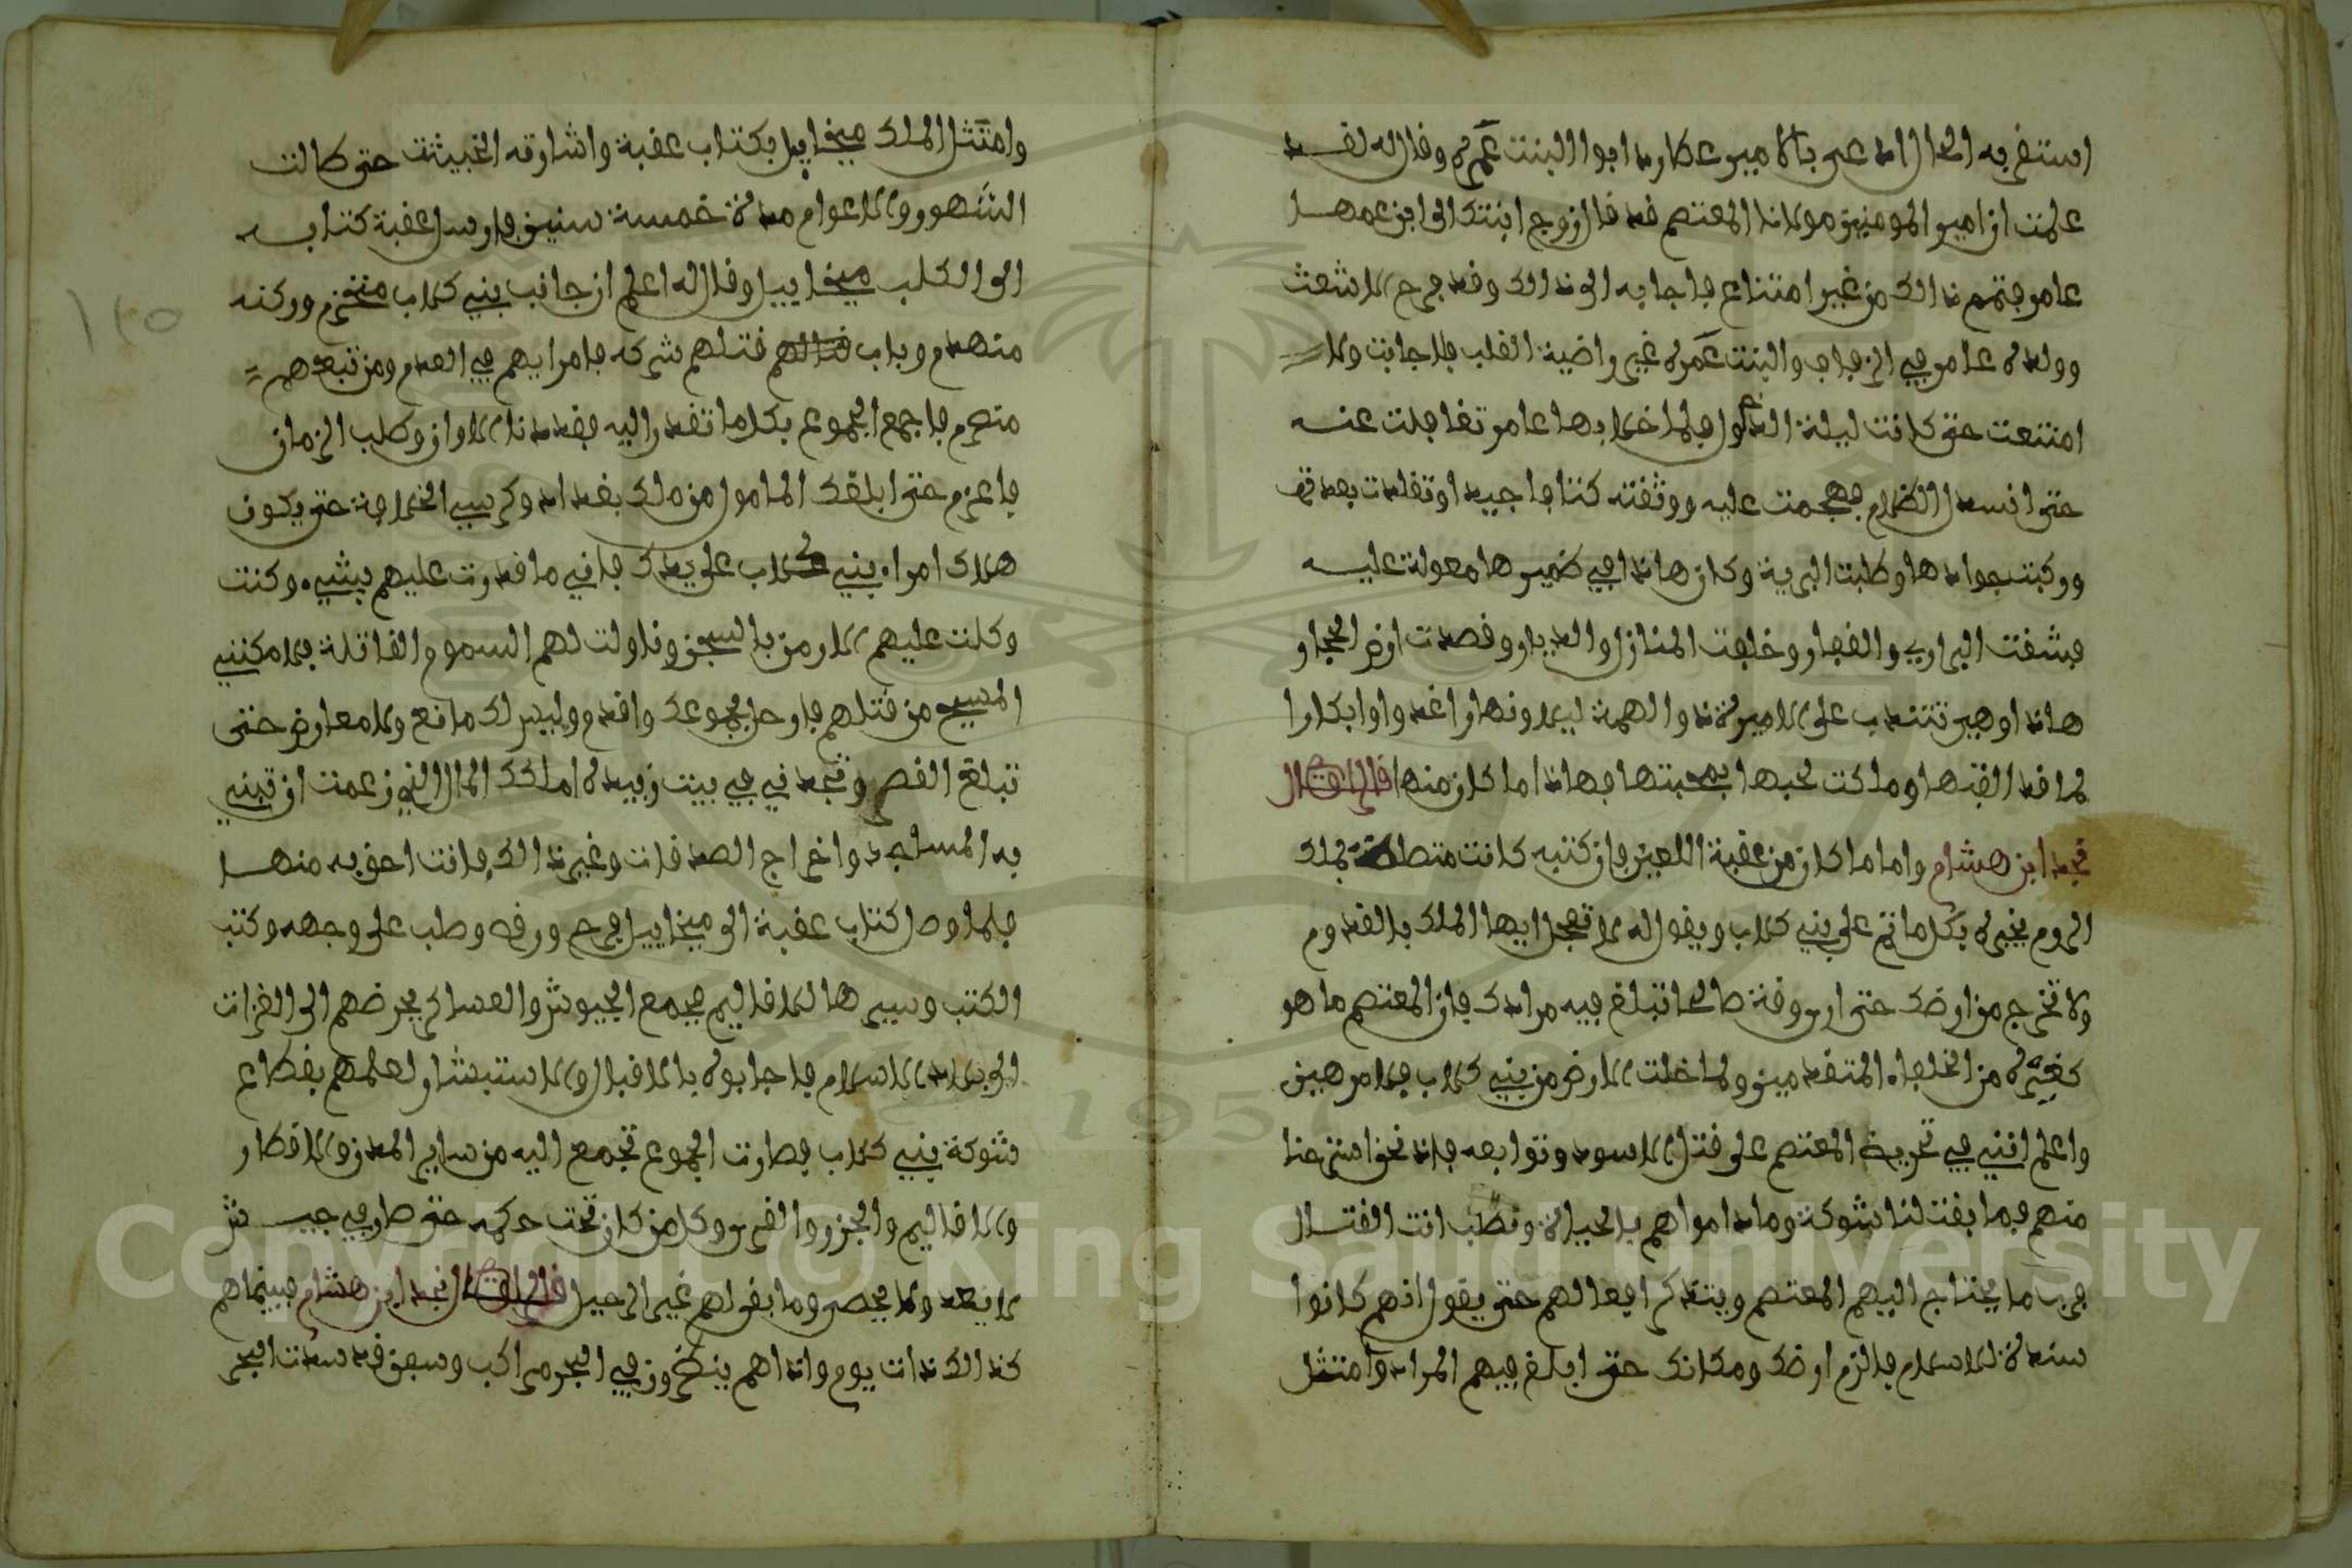 استقر به الحال ادعى بالامير عطارد ابوا البنت عمرة وقال له لقد
علمت ان امير المومنين مولانا المعتصم قد قال زوج ابنتك الى ابن عمها
عامر فتمم ذالك من غير امتناع فاجابه الى ذالك وقد فرح الاشعث
وولده عامر في الزفاف والبنت عمرة غير راضية القلب فلا جابت ولا
امتنعت حتى كانت ليلة الدخول فلما خلا بها عامر تغافلت عنه
حتى انسدل الظلام فهجمت عليه ووثقته كتافا جيدا وتقلدت بعدته
وركبت جوادها وطلبت البرية وكان هاذا في ضميرها معولة عليه
فشقت البراري والقفار وخلفت المنازل والديار وقصدت ارض الحجاز
هاذا وهي تنتدب على الاميرة ذوا الهمة ليلا ونهارا غدوا وابكارا
لما قد الفتها وملكت لحبها بصحبتها فهاذا ما كان منها قال الراوى قال
نجد ابن هشام واما ما كان من عقبة اللعين فان كتبه كانت متصلة لملك
الروم يخبره بكل ما تم على بني كلاب ويقول له لا تعجل ايها الملك بالقدوم
ولا تخرج من ارضك حتى ارى وقتة صالحا تبلغ فيه مرادك فان المعتصم ما هو
كغيره من الخلفاء المتقدمين ولما خلت الارض من بني كلاب فلا مرهبن
واعلم انني في تحريض المعتصم على قتل الاسود وتوابعه فاذا نحن استرحنا
منهم فما بقت لنا شوكة وما داموا هم بالحياة ونطلب انت القتال
فربما يحتاج اليهم المعتصم ويتذكر افعالهم حتى يقول انهم كانوا
سندة للاسلام فالزم ارضك ومكانك حتى ابلغ فيهم المراد وامتثل
وامتثل الملك ميخاييل بكتاب عقبة واشارته الخبيثة حتى طالت
الشهور والاعوام مدة خمسة سنين فارسل عقبة كتابه
الى الكلب ميخاييل وقال له اعلم ان جانب بني كلاب منخزم وركنه
منهدم وباب قتلهم شركه فامرايهم في العدم ومن تبعهم
منصرم فاجمع الجموع بكل ما تقدر اليه فقد دنا الاوان وطلب الزمان
فاعزم حتى ابلقك المامول من ملك بغداد وكرسي الخلافة حتى يكون
هلاك امراء بني كلاب على يدك فاني ما قدرت عليهم بشيء وكنت
وكلت عليهم الارمن بالسجن وناولت لهم السموم القاتلة فلا مكنني
المسيح من قتلهم فارحل بجموعك واقدم وليس لك مانع ولا معارض حتى
تبلغ القصر وتجدني في بيت زبيدة املكك المال الذي زعمت ان تبني
به المساجد واخراج الصدقات وغير ذالك فانت احق به منها
فلما وصل كتاب عقبة الى ميخاييل فرح ورقص وصلب على وجهه وكتب
الكتب وسيرها للاقاليم يجمع الجيوش والعساكر يحرضهم الى الغزات
الى بلاد الاسلام فاجابوه بالاقبال والاستبشار لعلمهم بقطاع
شوكة بني كلاب فصارت الجموع تجمع اليه من ساير المدن والاقطار
والاقاليم والجزر والقرى وكل من كان تحت حكمه حتى صار في جيش
لا يعد ولا يحصى وما بقى لهم غير الرحيل قال الراوى قال نجد ابن هشام فبينما هم
كذالك ذات يوم واذا هم ينظرون في البحر مراكب وسفن قد سدت البحر
١٢٥
Copyright © King Saud University
1957